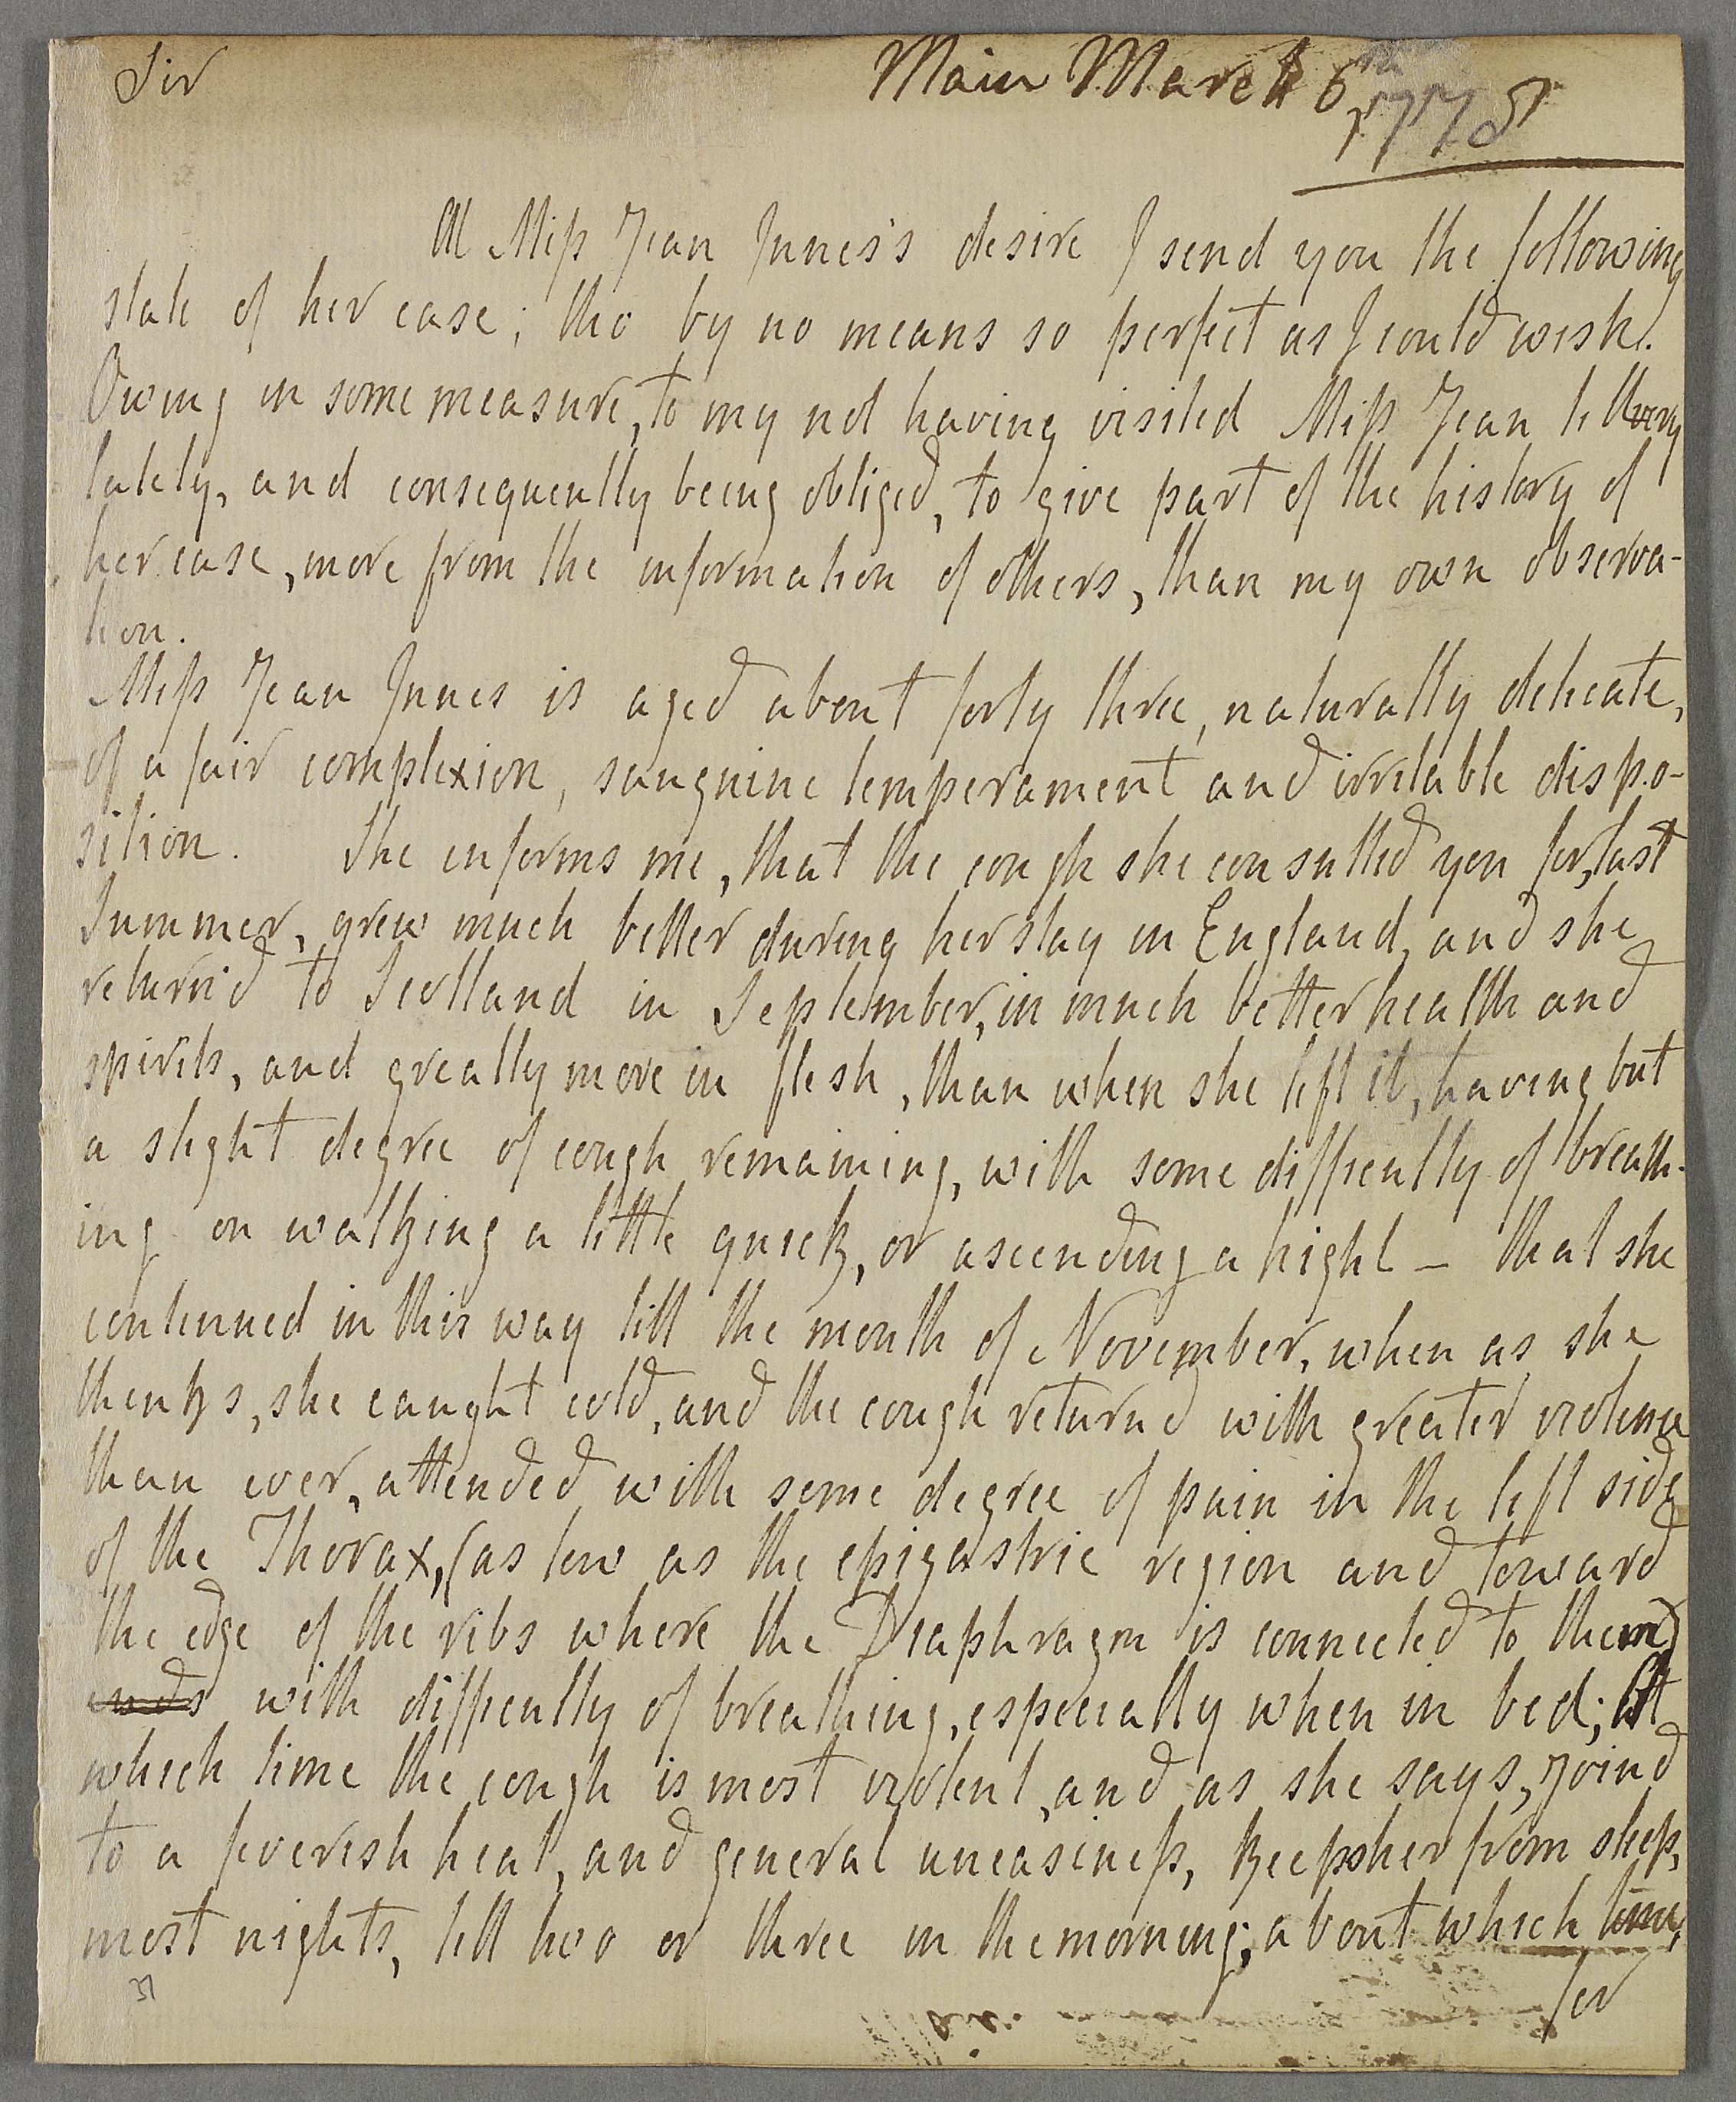 Sir
Main March 6th
1775
At Miss Jean Innes's desire I send you the following
state of her case; tho by no means so perfect as I could wish.
Owing in some measure, to my not having visited Miss Jean till very
lately, and consequently being obliged, to give part of the history of
her case, more from the information of others, than my own observa-
tion.
Miss Jean Innes is aged about forty three, naturally delicate,
of a fair complexion, sanguine temperament and irritable dispo-
sition. She informs me, that the cough she consulted you for, last
Summer, grew much better during her stay in England, and she
return'd to Scotland in September, in much better health and
spirits, and greatly more in flesh, than when she left it, having but
a slight degree of cough remaining, with some difficulty of breath-
ing on walking a little quick, or ascending a hight - that she
continued in this way till the month of November, when as she
thinks, she caught cold, and the cough returnd with greater violence
than ever, attended with some degree of pain in the left side
of the Thorax, (as low as the epigastric region and toward
the edge of the ribs where the Diaphragm is connected to them)
with difficulty of breathing, especially when in bed; At
which time the cough is most violent, and as she says, joind
to a feverish heat, and general uneasiness, keeps her from sleep,
most nights, till two or three in the morning; about which time,
for
31